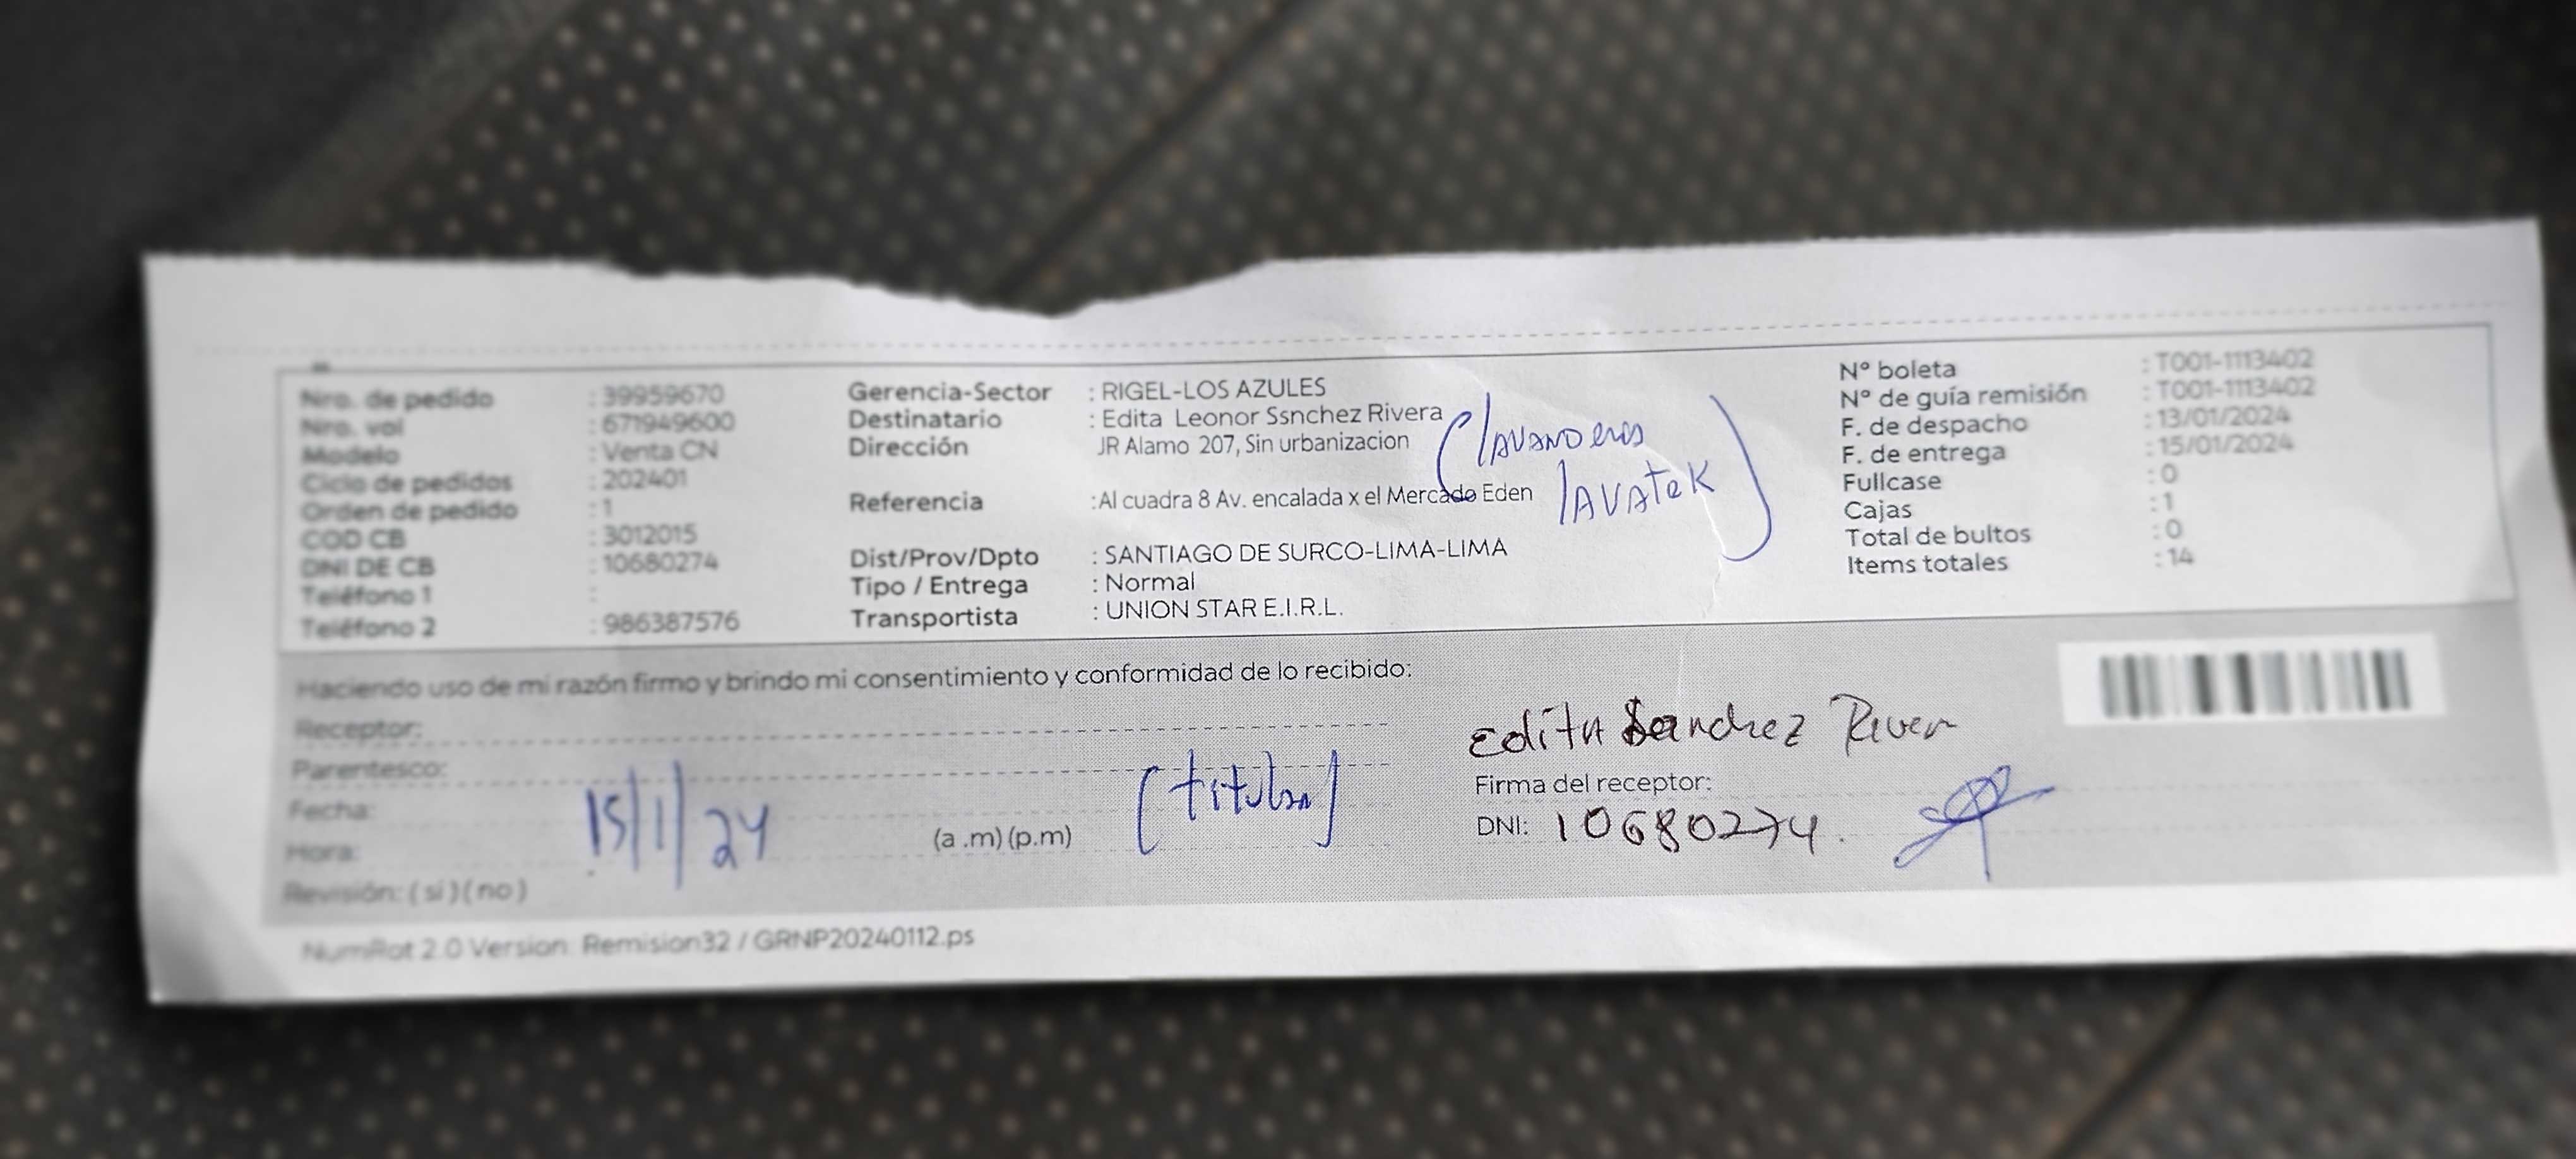 Nro. de pedido : 39959670
Nro. vol : 671949600
Modelo : Venta CN
Ciclo de pedidos : 202401
Orden de pedido : 1
COD CB : 3012015
DNI DE CB : 10680274
Teléfono 1 :
Teléfono 2 : 986387576
Gerencia-Sector : RIGEL-LOS AZULES
Destinatario : Edita Leonor Ssnchez Rivera
Dirección JR Alamo 207, Sin urbanizacion
Referencia :Al cuadra 8 Av. encalada x el Mercado Eden
Dist/Prov/Dpto : SANTIAGO DE SURCO-LIMA-LIMA
Tipo / Entrega : Normal
Transportista : UNION STAR E.I.R.L.
lavatek)
N° boleta : T001-1113402
N° de guía remisión : T001-1113402
F. de despacho : 13/01/2024
F. de entrega : 15/01/2024
Fullcase : 0
Cajas : 1
Total de bultos : 0
Items totales : 14
Haciendo uso de mi razón firmo y brindo mi consentimiento y conformidad de lo recibido:
Receptor:
Parentesco:
Fecha: 15/1/24
Hora: (a .m) (p.m)
Revisión: (si) (no)
Edita Sanchez River
Firma del receptor:
DNI: 10680274.
NumRot 2.0 Version: Remision32 / GRNP20240112.ps